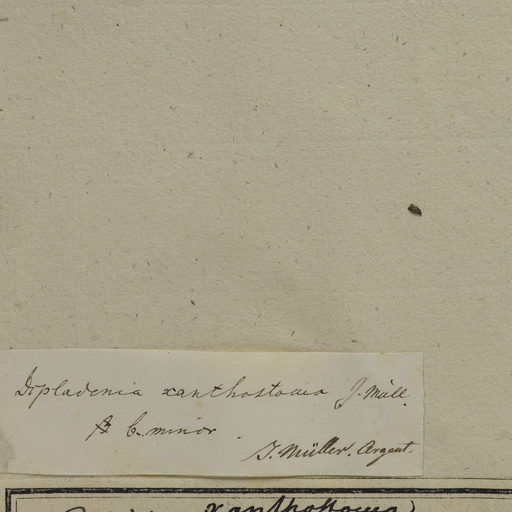 Dipladenia xanthostoma J. Müll.
b. minor.
J. Müller. Argent.
xanthostoma